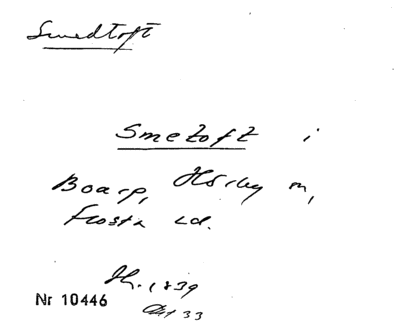 Smedtoft
Smetoft i
Boarp, Hörby sn,
Frosta hd.
1839
Nr 10446
33